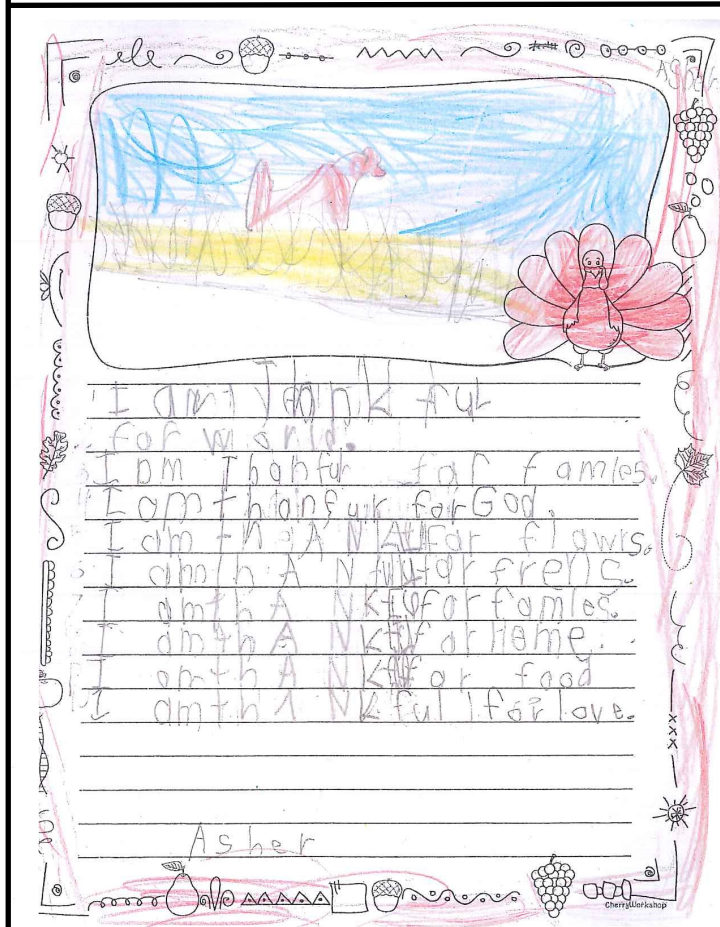 Asher
I am Thenk ful
for world.
I am Thanful for famles.
I am thanfuk for God.
I am thANkful for flawrs.
I am thANfulk for frells.
I am thANkful for famles.
I am thANkful for Home.
I am thANkful for food
I am thANkful for love.
Asher
CherryWorkshop